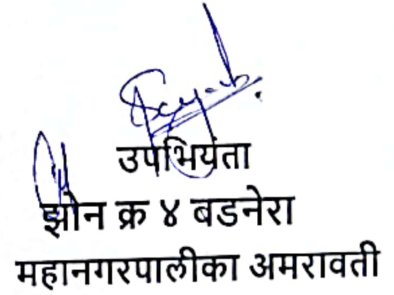 उपभियंता
झोन क्र ४ बडनेरा
महानगरपालीका अमरावती